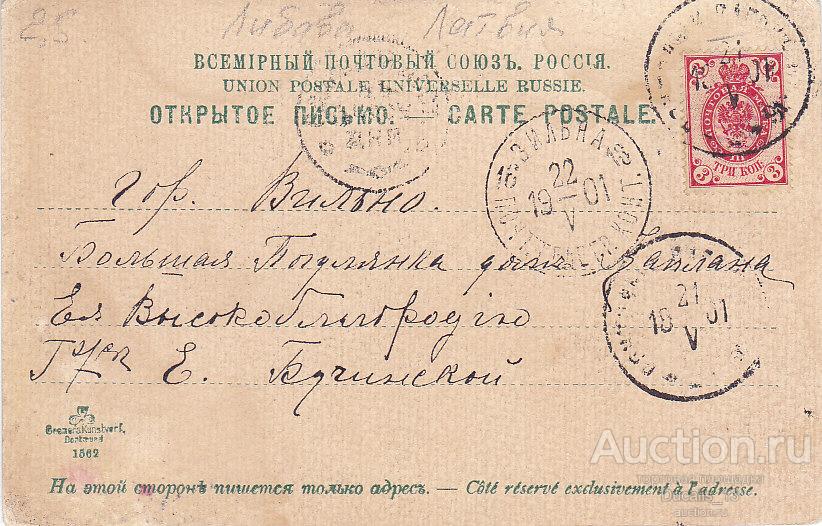 2,5 Либава Латвия
ВСЕМІРНЫЙ ПОЧТОВЫЙ СОЮЗЪ. РОССІЯ.
UNION POSTALE UNIVERSELLE RUSSIE.
ОТКРЫТОЕ ПИСЬМО. — CARTE POSTALE.
ПОЧТОВАЯ МАРКА
3 ТРИ КОП. 3
21 V
ВИЛЬНА
22
19 01
V
Гор. Вильно.
Большая Погулянка домъ Каплана
21
19 01
V
Ея Высокоблагородію
Г-жѣ Е. Бучинской
Kunstverl.
Dortmund
1562
На этой сторонѣ пишется только адресъ. — Côté réservé exclusivement à l'adresse.
Auction.ru
auction.ru